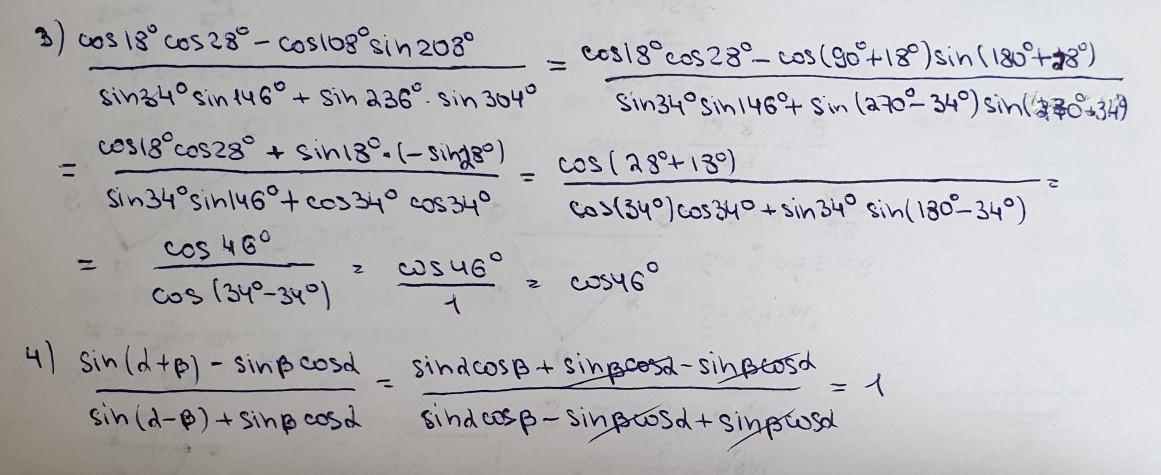 3) (cos18°cos28° - cos108°sin208°)/(sin34°sin146° + sin236°·sin304°) = (cos18°cos28° - cos(90°+18°)sin(180°+28°))/(sin34°sin146° + sin(270°-34°)sin(270°+34°)
= (cos18°cos28° + sin18°·(-sin28°))/(sin34°sin146° + cos34° cos34°) = cos(28°+18°)/(cos(34°)cos34° + sin34° sin(180°-34°)) =
= cos46°/cos(34°-34°) = cos46°/1 = cos46°
4) (sin(α+β) - sinβcosα)/(sin(α-β) + sinβcosα) = (sinαcosβ + sinβcosα - sinβcosα)/(sinαcosβ - sinβcosα + sinβcosα) = 1